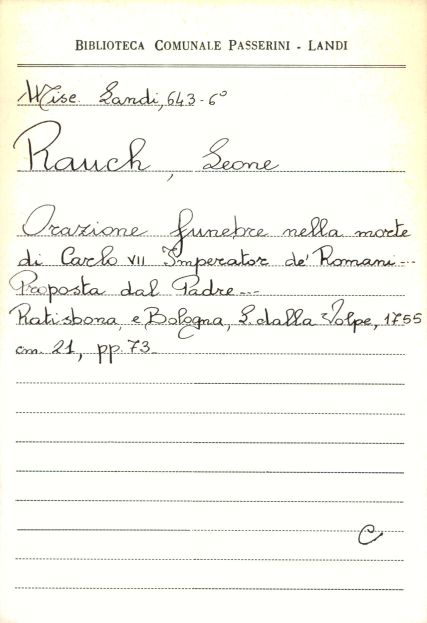 BIBLIOTECA COMUNALE PASSERINI - LANDI
Misc. Landi, 643-6°
Rauch, Leone
Orazione funebre nella morte
di Carlo VII Imperator de' Romani...
Proposta dal Padre...
Ratisbona, e Bologna, L. dalla Volpe, 1755
cm. 21, pp. 73
C